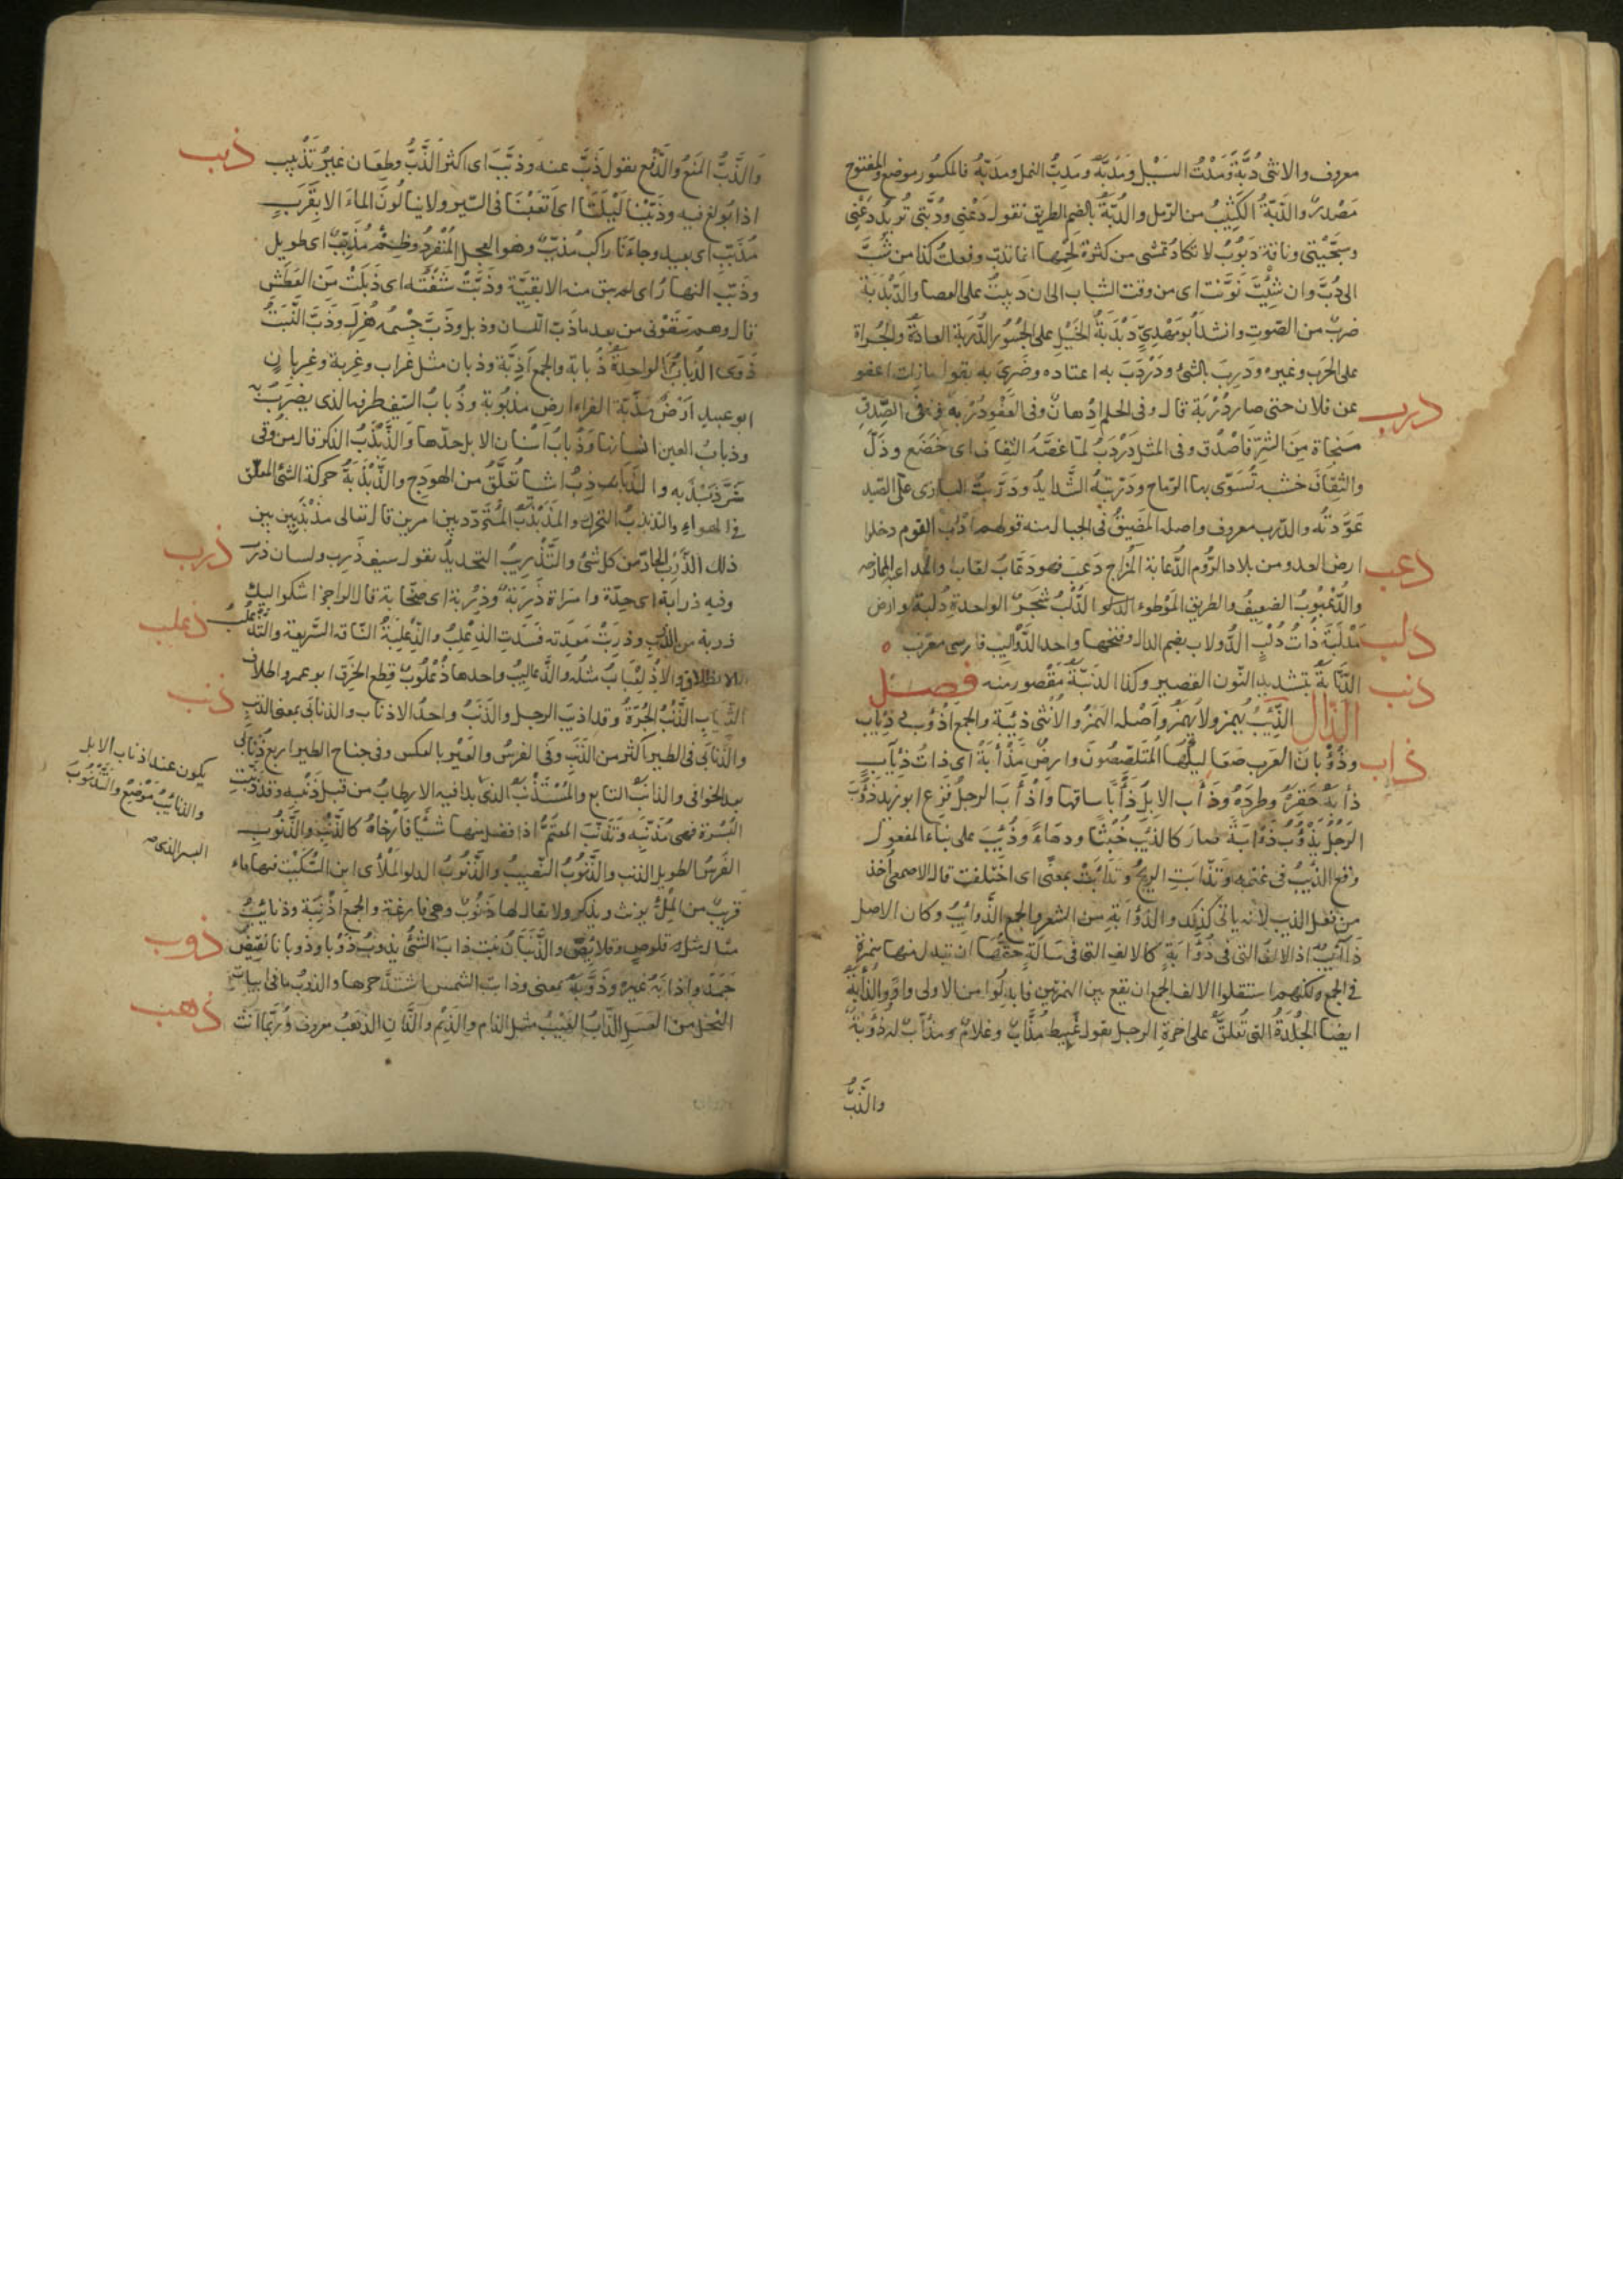 معروف والانثى دُبَّة وَمَدَبُّ السَّيْل وَمَدَبَّهُ ومَدِبُّ النمل ومَدَبّهُ فالمكسُور موضع والمفتوح
مَصْدر والدَّبّةُ الكَثِيْبُ من الرّمل والدُّبّةُ بالضم الطريق تقول دَعْنى ودُبَّتى تُريدُ دَعْنى
وسَجِيَّتى وناقة دَبُوْبٌ لا تكادُ تمشى من كثرة لحمها انما تدبّ وفعلتُ كذا من شُبَّ
الى دُبَّ وان شِئْتَ نَوَّنت اى من وقت الشباب الى ان دَبِبتُ على العصا والدَّبْدَبَة
ضربٌ من الصّوت وانشد ابو مَهْدِىّ دَبْدَبَةُ الخَيْلِ على الجُسُور الدُّربة العادة والجُراة
على الحَرب وغيره ودَرِبَ بالشئ ودَرْدَبَ به اعتاده وضَرِىَ به يقول مازلت اعفو
درب عن فلان حتى صار دُرْبَة قال وفى الحلم اِدْهانٌ وفى العَفْو دُرْبةٌ وفى الصِّدق
مَنجاة مِنَ الشرّ فاصْدُق وفى المثل دَرْدَبَ لمّا عَضّهُ الثِقاف اى خَضَع وذَلّ
والثِقاف خَشبه تُسَوّى بها الرّماح ودرّبَتهُ الشَّدايدُ ودَرَّبتُ البازى على الصّيد
عَوَّدتُه والدّرب معروف واصله المَضِيْقُ فى الجبال منه قولهم ادرب القوم دخلوا
دعب ارض العدو من بلاد الرُّوم الدُّعابة المُزاح دَعِبَ فهو دَعّابٌ لعّاب والمُداعبة الممازحه
والدُّعْبُوْبُ الضعيفُ والطريق المَوْطوء الدُّلْبُ شَجَرٌ الواحدة دُلبَة وارض
دلب مَدْلَبَة ذاتُ دُلْبٍ الدُّولاب بضم الدال وفتحها واحد الدَّوالِيْب فارسى معرّب
دنب الدِّنّابةُ بتشديد النّون القصير وكذا الدِنّبَةُ مَقْصور منه فصل
الذال الذِّئبُ يُهمز ولا يُهمَزُ واَصْله الهمزُ والاُنثى ذئبَة والجمع اَذْوُب وذِئاب
ذاب وذُؤْبان العَرب صَعاليْكها المُتَلصّصُونَ وارضٌ مَذْأَبَةٌ اى ذاتُ ذئآب
ذأَبهُ حَقِرَهُ وطردَهُ وذَأَب الابِلَ ذَأبًا ساقها وَاَذْأَبَ الرجلُ فَزِع ابو زيد ذَؤُبَ
الرجُلُ يَذْؤُبُ ذَآبَةً صارَ كالذئب خُبْثًا ودهاءً وذُئِبَ على بناء المفعول
وقع الذئبُ فى غنمه وَتذَأّبتِ الريحُ وتذَاءبتْ بمعنًى اى اختَلفت قال الاصمعى اُخذَ
من فعل الذيب لانه ياتى كذلك والذُؤابة من الشعر والجمع الذَّوائبُ وكان الاصل
ذَآئبُ اذ الالفُ التى فى ذُؤابةٍ كالالف التى فى رسَالةٍ حَقُّها ان تبدل منها همزة
فى الجمع ولكنهم استثقلوا الالف الجمع ان تقع بين الهمزتين فابدلُوا من الاولى واوًا والذؤابةُ
ايضا الجِلْدةُ التى تُعلقُ على اخرة الرحل يقول غَبِيط مُذأّبٌ وغلامٌ مُذأّبٌ له ذُؤابةٌ
والذَّبُّ
وَالذَّبُّ المَنعُ والدَّفعُ يقول ذَبَّ عنه وذبَّبَ اى اكثر الذَّبَّ وطِعان غيرُ تَذْبيب ذبب
اذا بُولغ فيه وذَبَّبْنا لَيْلَتَنا اى اَتعَبْنا فى السَّير ولا ينالُونَ الماءَ الا بقَرَبٍ
مُذَبِّب اى بعيد وجاءَنا راكب مُذبِّبٌ وهو العجل المُنْفردُ وظِمْءٌ مُذَبِّبٌ اى طويل
وذبّب النهارُ اى لم يبق منه الا بقيّة وذَبَّتْ شَفتُه اى ذَبَلَتْ منَ العَطش
قال وهم سَقَوْنى من بعد ما ذَبّ اللّسان وذبل وذَبَّ جِسْمُه هُزِل وذَبَّ النَّبتُ
ذَوَى الذُبابُ الواحدةُ ذُبابة والجمع اَذِبَّة وذبان مثل غراب واغربة وغِربان
ابو عبيد اَرْضٌ مَذَبّة الفراء ارض مذبُوبة وذُبابُ السّيف طرفه الذى يضرَبُ به
وذبابُ العين انسانها وَذُبابُ اَسْنان الابل حدّها وَالذَّبْذَبُ الذكر قال من وُقى
شَرَّ ذَبْذَبه والذَّباذب اشيا تُعَلَّقُ من الهوْدَج والذَّبْذَبَةُ حركة الشئ المعلق
فى الهواءِ والتذبذبُ التحرُك والمذَبْذَبُ المُتَردّد بين امرين قال تعالى مذَبْذَبين بين
ذلك الذَّرِبُ الحادّ من كل شئ والتَّذْريبُ التحديدُ يقول سيف ذَرِب ولسان ذرب ذرب
وفيه ذرابة اى حِدّة وامراة ذَرِبَةٌ وذِرْبة اى صخّابة قال الراجز اشكوا اليك
ذربة من الذّرب وذرِبَتْ مَعِدَته فسَدت الذِعْلِبُ والذِّعْلِبَةُ النّاقه السَّريعة والتذَعْلُبُ ذعلب
الانطلاق والاذْلِعْبابُ مثلُه والذَّعاليبُ واحدها ذُعْلُوبٌ قِطع الخِرَق ابو عمرو اطراف
الثياب الذَّنْبُ الجُرْمُ وقد اذنبَ الرجل والذَنَبُ واحدُ الاذناب والذنابَى بمعنى الذنب ذنب
والذُنابَى فى الطير اكثر من الذَنَب وفى الفرس والعَيْر بالعكس وفى جناح الطير اربع ذُنابَى
بعد الخوافى والذانبُ التابع والمُسْتَذْنبُ الذى يكون عند اذناب الابل
والذنائبُ مَوْضِع والتَّذْنُوبُ البسر الذى
بدا فيه الارطابُ من قبل ذَنبه وقد ذَنَّبتِ
البُسْرة فهى مُذَنّبَه وَتَذَنّبَ المعتَمُّ اذا افضل منها شَيْئا فارْخاهُ كالذَّنَبِ والذَّنُوب
الفَرسُ الطويل الذنب والذَّنُوبُ النَّصيبُ والذَّنُوبُ الدلو المَلْأى ابن السّكّيْت فيها ماء
قريبٌ من المِلْءِ يونث ويذكر ولا يقال لها ذَنُوبٌ وهى فارغة والجمع اَذْنِبَة وذنائبُ
مثال قلوص وقلائصَ والذَّنَبانُ نبت ذابَ الشئُ يذوبُ ذَوْبا وذوبانا نقيضُ ذوب
جَمَدَ واذابَهُ غيره وذَوَّبهُ بمعنى وذابت الشمس اشتدّ حرها والذوبُ ما فى ابيات
النحل من العَسَل الذَّابُ العَيْبُ مثل الذام والذَيْم والذّانِ الذهبُ معروف وَرُبّما انّث ذهب